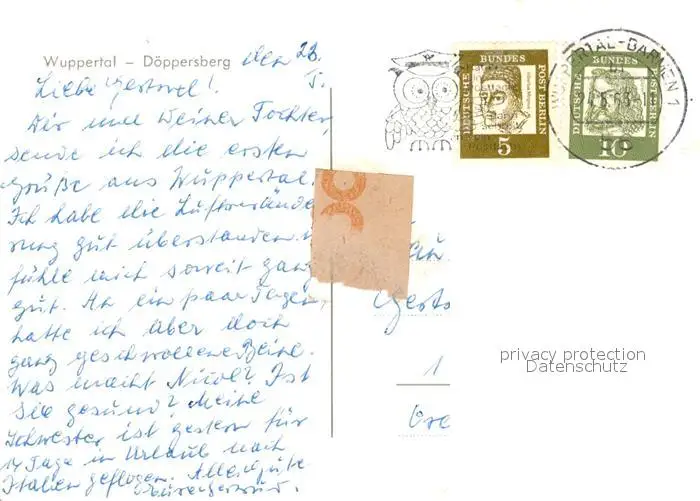 Wuppertal – Döppersberg den 23.
Liebe !
Dir und Deiner Tochter,
sende ich die ersten
Grüße aus Wuppertal.
Ich habe die Luftverände
rung gut überstanden u.
fühle mich soweit ganz
gut. An ein paar Tagen,
hatte ich aber doch
ganz geschwollene Beine.
Was macht Nicol? Ist
sie gesund? Meine
Schwester ist gestern für
14 Tage in Urlaub nach
Italien geflogen. Alles Gute
DEUTSCHE BUNDES POST BERLIN
5
DEUTSCHE BUNDES POST BERLIN
10
WUPPERTAL-BARMEN 1
1
privacy protection
Datenschutz